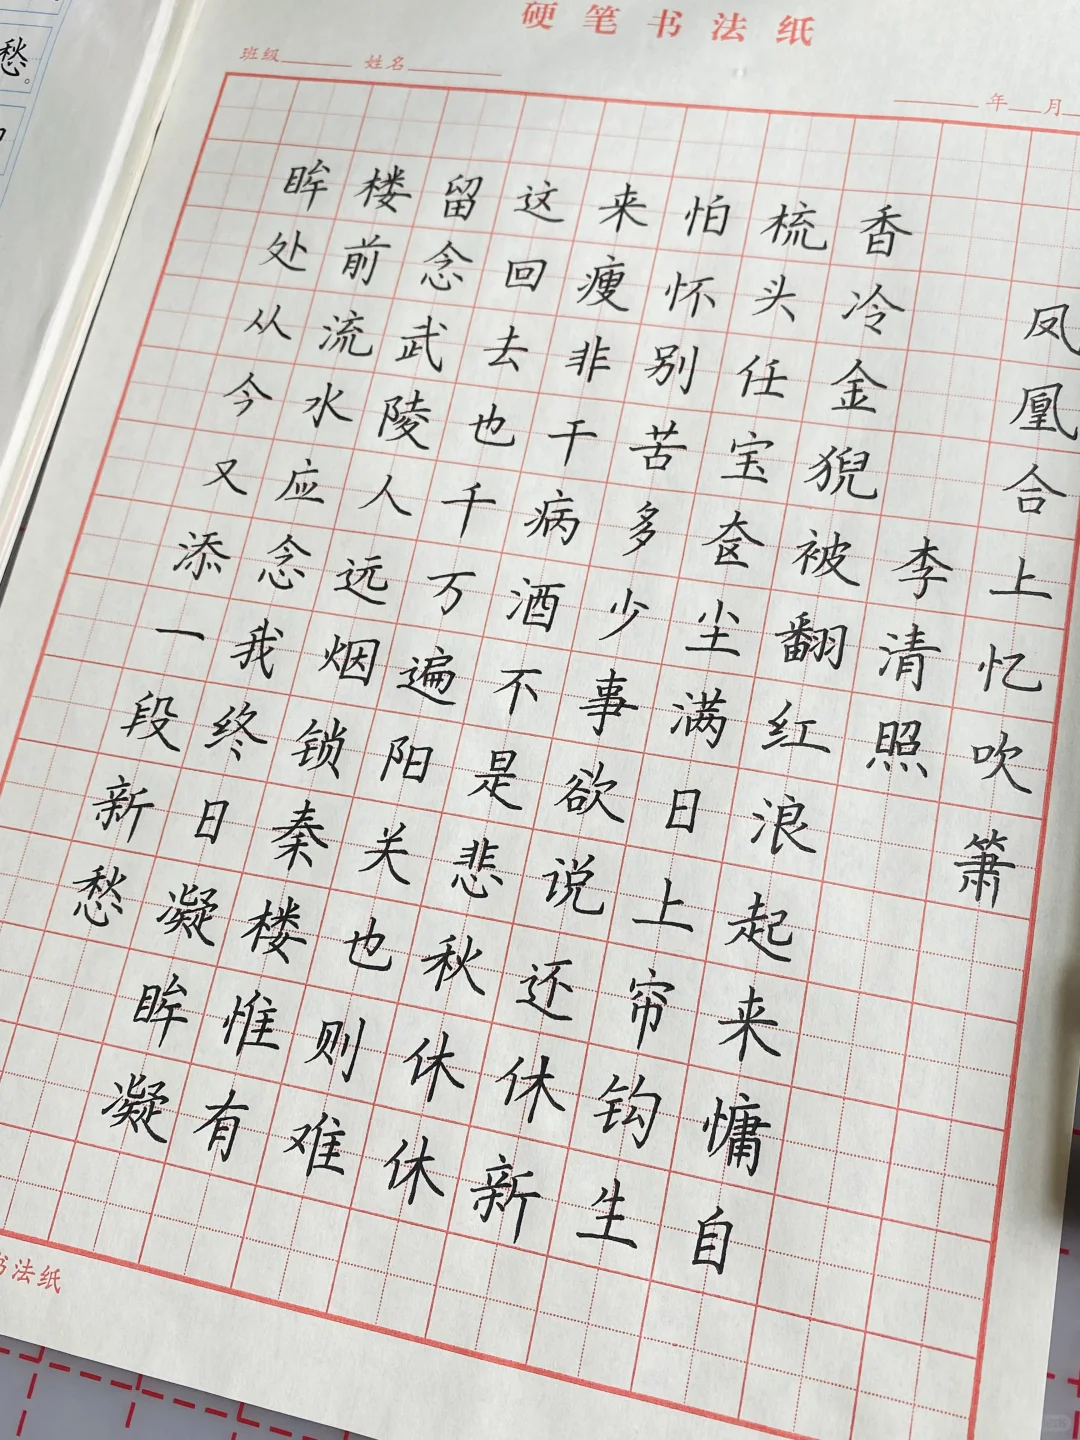 硬笔书法纸
班级 姓名
年 月
凤凰合上忆吹箫
李清照
香冷金猊被翻红浪起来慵自
梳头任宝奁尘满日上帘钩生
怕怀别苦多少事欲说还休新
来瘦非干病酒不是悲秋休休
这回去也千万遍阳关也则难
留念武陵人远烟锁秦楼惟有
楼前流水应念我终日凝眸凝
眸处从今又添一段新愁
书法纸
愁。